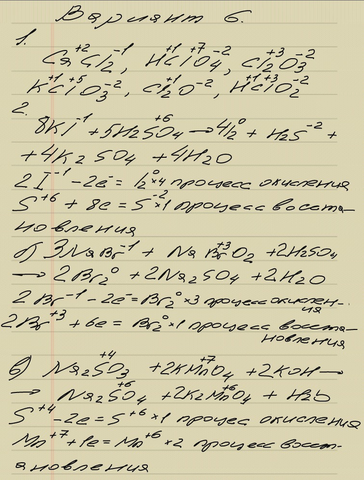 Вариант 6.
1.
Ca⁺²Cl₂⁻¹, H⁺¹Cl⁺⁷O₄⁻², Cl₂⁺³O₃⁻²
K⁺¹Cl⁺⁵O₃⁻², Cl₂⁺¹O⁻², H⁺¹Cl⁺³O₂⁻²
2.
8KI⁻¹ + 5H₂S⁺⁶O₄ → 4I₂⁰ + H₂S⁻² +
+ 4K₂SO₄ + 4H₂O
2I⁻¹ – 2e⁻ = I₂⁰ ×4 процесс окисления
S⁺⁶ + 8e = S⁻² ×1 процесс восста-
новления
б) 3NaBr⁻¹ + NaBr⁺³O₂ + 2H₂SO₄
→ 2Br₂⁰ + 2Na₂SO₄ + 2H₂O
2Br⁻¹ – 2e⁻ = Br₂⁰ ×3 процесс окислен-
ия
2Br⁺³ + 6e = Br₂⁰ ×1 процесс восста-
новления
в) Na₂S⁺⁴O₃ + 2KMn⁺⁷O₄ + 2KOH →
→ Na₂S⁺⁶O₄ + 2K₂Mn⁺⁶O₄ + H₂O
S⁺⁴ – 2e = S⁺⁶ ×1 процес окисления
Mn⁺⁷ + 1e = Mn⁺⁶ ×2 процесс восст-
ановления